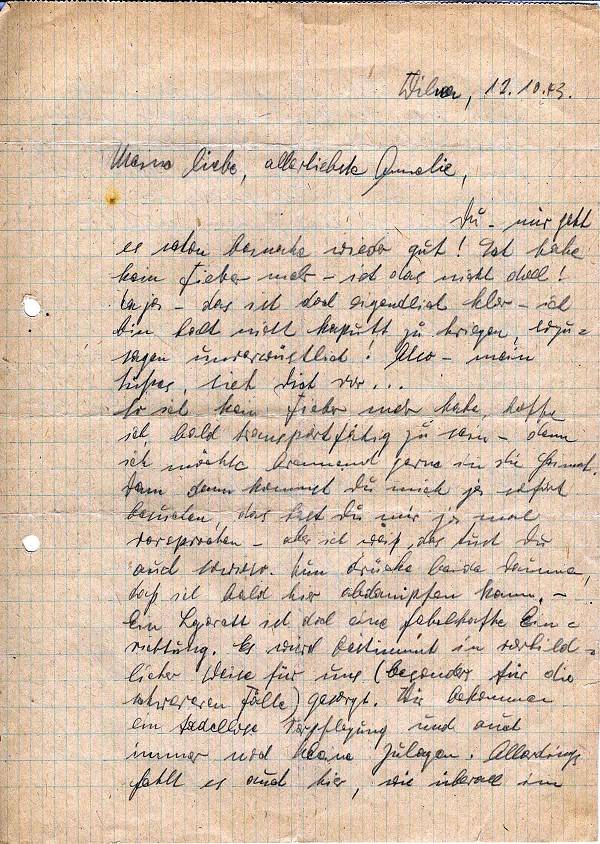 Wilna, 12.10.43.
Meine liebe, allerliebste Annelie,
Du - mir geht
es schon beinahe wieder gut! Ich habe
kein Fieber mehr - ist das nicht doll!
Na ja - das ist doch eigentlich klar - ich
bin halt nicht kaputt zu kriegen, sozu=
sagen unverwüstlich! Also - mein
sieh Dich vor...
Da ich kein Fieber mehr habe, hoffe
ich, bald transportfähig zu sein - denn
ich möchte brennend gerne in die Heimat.
Denn dann kommst Du mich ja sofort
besuchen, das hast Du mir ja mal
versprochen - aber ich weiß, das tust Du
auch sowieso. Nun drücke beide Daumen,
daß ich bald hier abdampfen kann. -
Ein Lazarett ist doch eine fabelhafte Ein=
richtung. Es wird bestimmt in vorbild=
licher Weise für uns (besonders für die
schwereren Fälle) gesorgt. Wir bekommen
ein tadellose Verpflegung und auch
immer noch kleine Zulagen. Allerdings
fehlt es auch hier, wie überall im